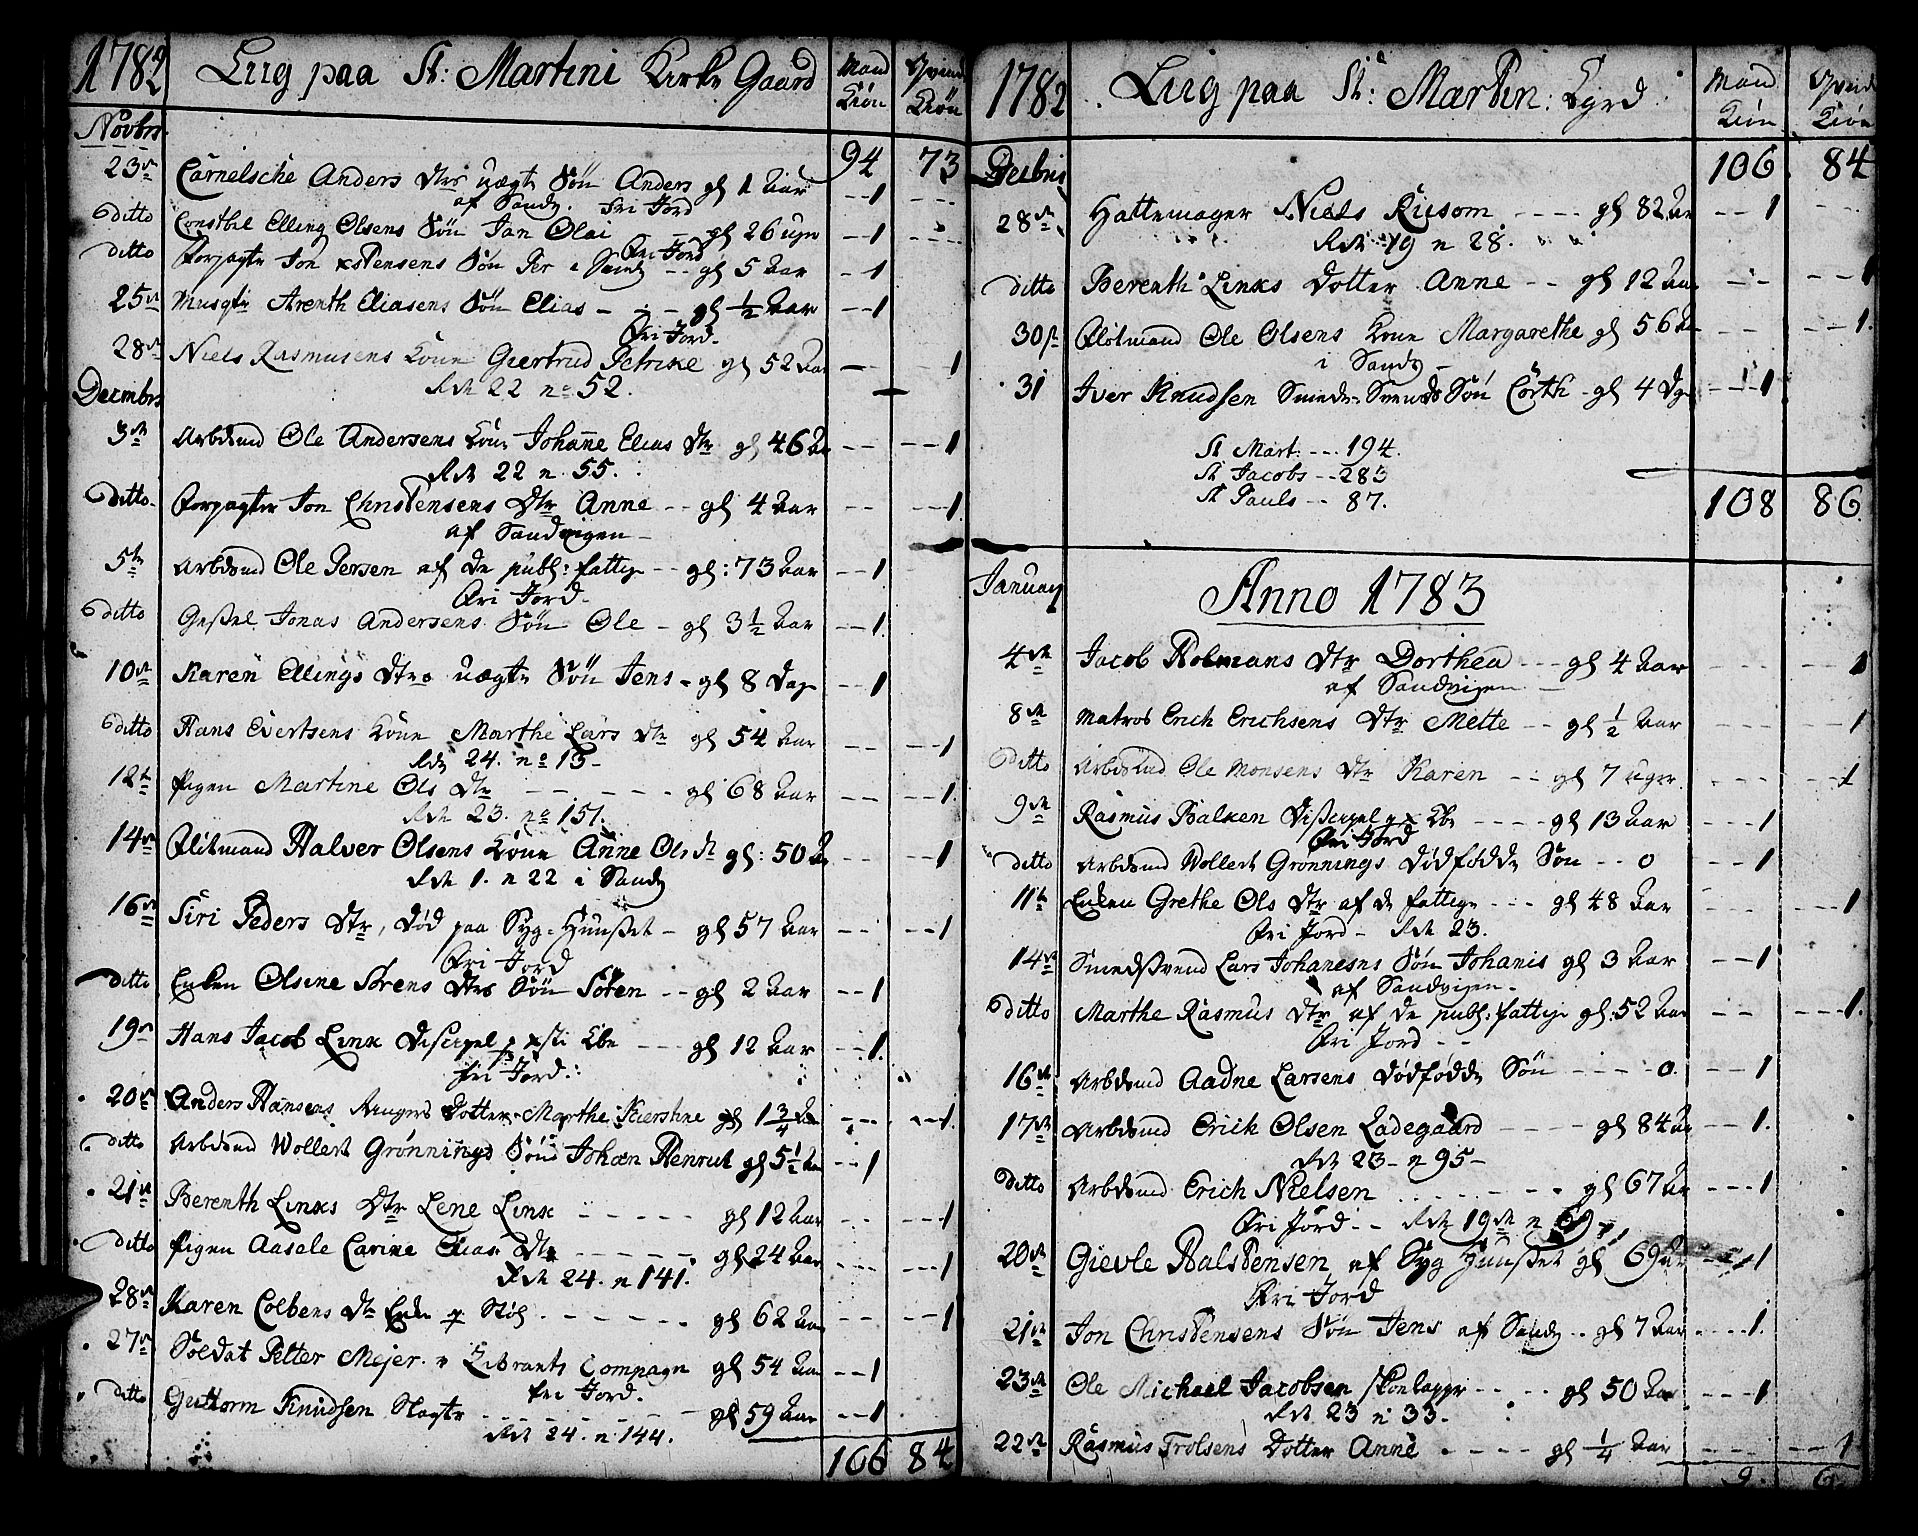 1782 Liig paa St: Martini Kirke Gaard Mand Kiön Qvind Kiön
Novbr.
94 73
23de Carnelsche Anders dtrs uægte Sön Anders gl 1 Aar --1
af Sandv. fri Jord
ditto Constbel Elling Olsens Sön Jan Olai -- gl 26 uger --1
fri Jord
ditto Forpagter Jon xstensens Sön Per i Sandv -- gl 5 Aar --1
25de Musqtr Arenth Eliasens Sön Elias - - - gl 1/2 Aar --1
fri Jord.
28de Niels Rasmusens Kone Giertrud Petrike gl 52 Aar -- 1
Rde 22 no 52.
Decembr
3de Arbdsmd Ole Andersens Kone Johanne Elias dtr gl 46 Aar -- --1
Rde 22 n 55.
ditto Forpagter Jon Christensens dtr Anne -- gl 4 Aar -- --1
af Sandvigen -
5te Arbdsmd Ole Persen af de publ: fattige -- gl: 73 Aar --1
fri Jord.
ditto Geßel Jonas Andersens Sön Ole - gl 3 1/2 Aar --1
10de Karen Ellings dtrs uægte Sön Jens - gl 8 Dage --1
ditto Hans Evertsens Kone Marthe Lars dtr gl 54 Aar -- --1
Rde 24. no 13-
12te Pigen Martine Ols dtr - - - - - gl 68 Aar -- --1
Rde 23. no 151.
14de Flötmand Halver Olsens Kone Anne Ols dr gl: 50 Aar -- --1
Rde 1. n 22 i Sandv
16de Siri Peders dtr, död paa Syge-Huuset - gl 57 Aar -- --1
fri Jord
ditto Enken Olsine Sörens dtrs Sön Sören -- gl 2 Aar --1
19de Hans Jacob Link Discipel p xsti Kbe --- gl 12 Aar --1.
fri Jord.
20de Anders Hansens Ringers Dotter Marthe Kierstine gl 1 3/4 Aar --- --1.
ditto Arbdsmd Wollert Grönnings Sön Johan Henrich gl 5 1/2 Aar --1
21de Berenth Links Dtr Lene Link - - - - - gl 12 Aar -- --1
ditto Pigen Aasele Carine Elias dtr - - - - - gl 24 Aar --- --1
Rde 24. n 141.
28de Karen Colbens dtr Enke p Stöl. - - - - - gl 62 Aar -- --1
27de Soldat Petter Mejer v Zibrantz Compagn gl 54 Aar --1
fri Jord.
ditto Guttorm Knudsen Slagter - - - - - gl 59 Aar --1
Rde 24. n 144.
106 84
1782 Liig paa St: Martin: Kgrd Mand Kiön Qvind Kiön
Decbris
106 84
28de Hattemager Niels Riisom ---- gl 82 Aar --1
Rde 19 n 28.
ditto Berenth Links Dotter Anne -- gl 12 Aar -- --1
30te Flötmand Ole Olsens Kone Margarethe gl 56 Aar --- --1.
i Sandv -
31 Iver Knudsen Smede-Svends Sön Cörth - gl 4 Dge --1
St Mart. --- 194.
St Jacobs -- 283
St Pauls -- 87.
108 86
January Anno 1783
4de Jacob Holmans dtr Dorthea --- gl 4 Aar --- --1
af Sandvigen -
8de Matros Erich Erichsens dtr Mette -- gl 1/2 Aar ---- --1
ditto Arbdsmd Ole Monsens dtr Karen -- gl 7 uger --- --1
9de Rasmus Balken Discipel p x Kbe ---- gl 13 Aar ---1
fri Jord
ditto Arbdsmd Wollert Grönnings Dödfödde Sön -- 0 --1
11te Enken Grethe Ols dtr af de fattige --- gl 48 Aar --- ---1
fri Jord - Rde 23.
14de Smedsvend Lars Johanesns Sön Johanis gl 3 Aar --1
af Sandvigen.
ditto Marthe Rasmus dtr af de publ: fattige gl: 52 Aar -- ---1.
fri Jord --
16de Arbdsmd Aadne Larsens Dödfödde Sön ---- 0. --1
17de Arbdsmd Erik Olsen Ladegaard ---- gl 84 Aar --1.
Rde 23- n 95-
ditto Arbdsmd Erich Nielsen - - - - - gl 67 Aar ---1
fri Jord -- Rde 19de n
20de Gievle Halstensen af Syge Huuset gl 69 Aar --1
fri Jord
21de Jon Christensens Sön Jens af Sandv -- gl 7 Aar ---1.
23de Ole Michael Jacobsen Skoelapper --- gl 50 Aar ---1
Rde 23 n 33.
22de Rasmus Trolsens Dotter Anne - ---- gl 1/4 Aar --- --1
9. 6.